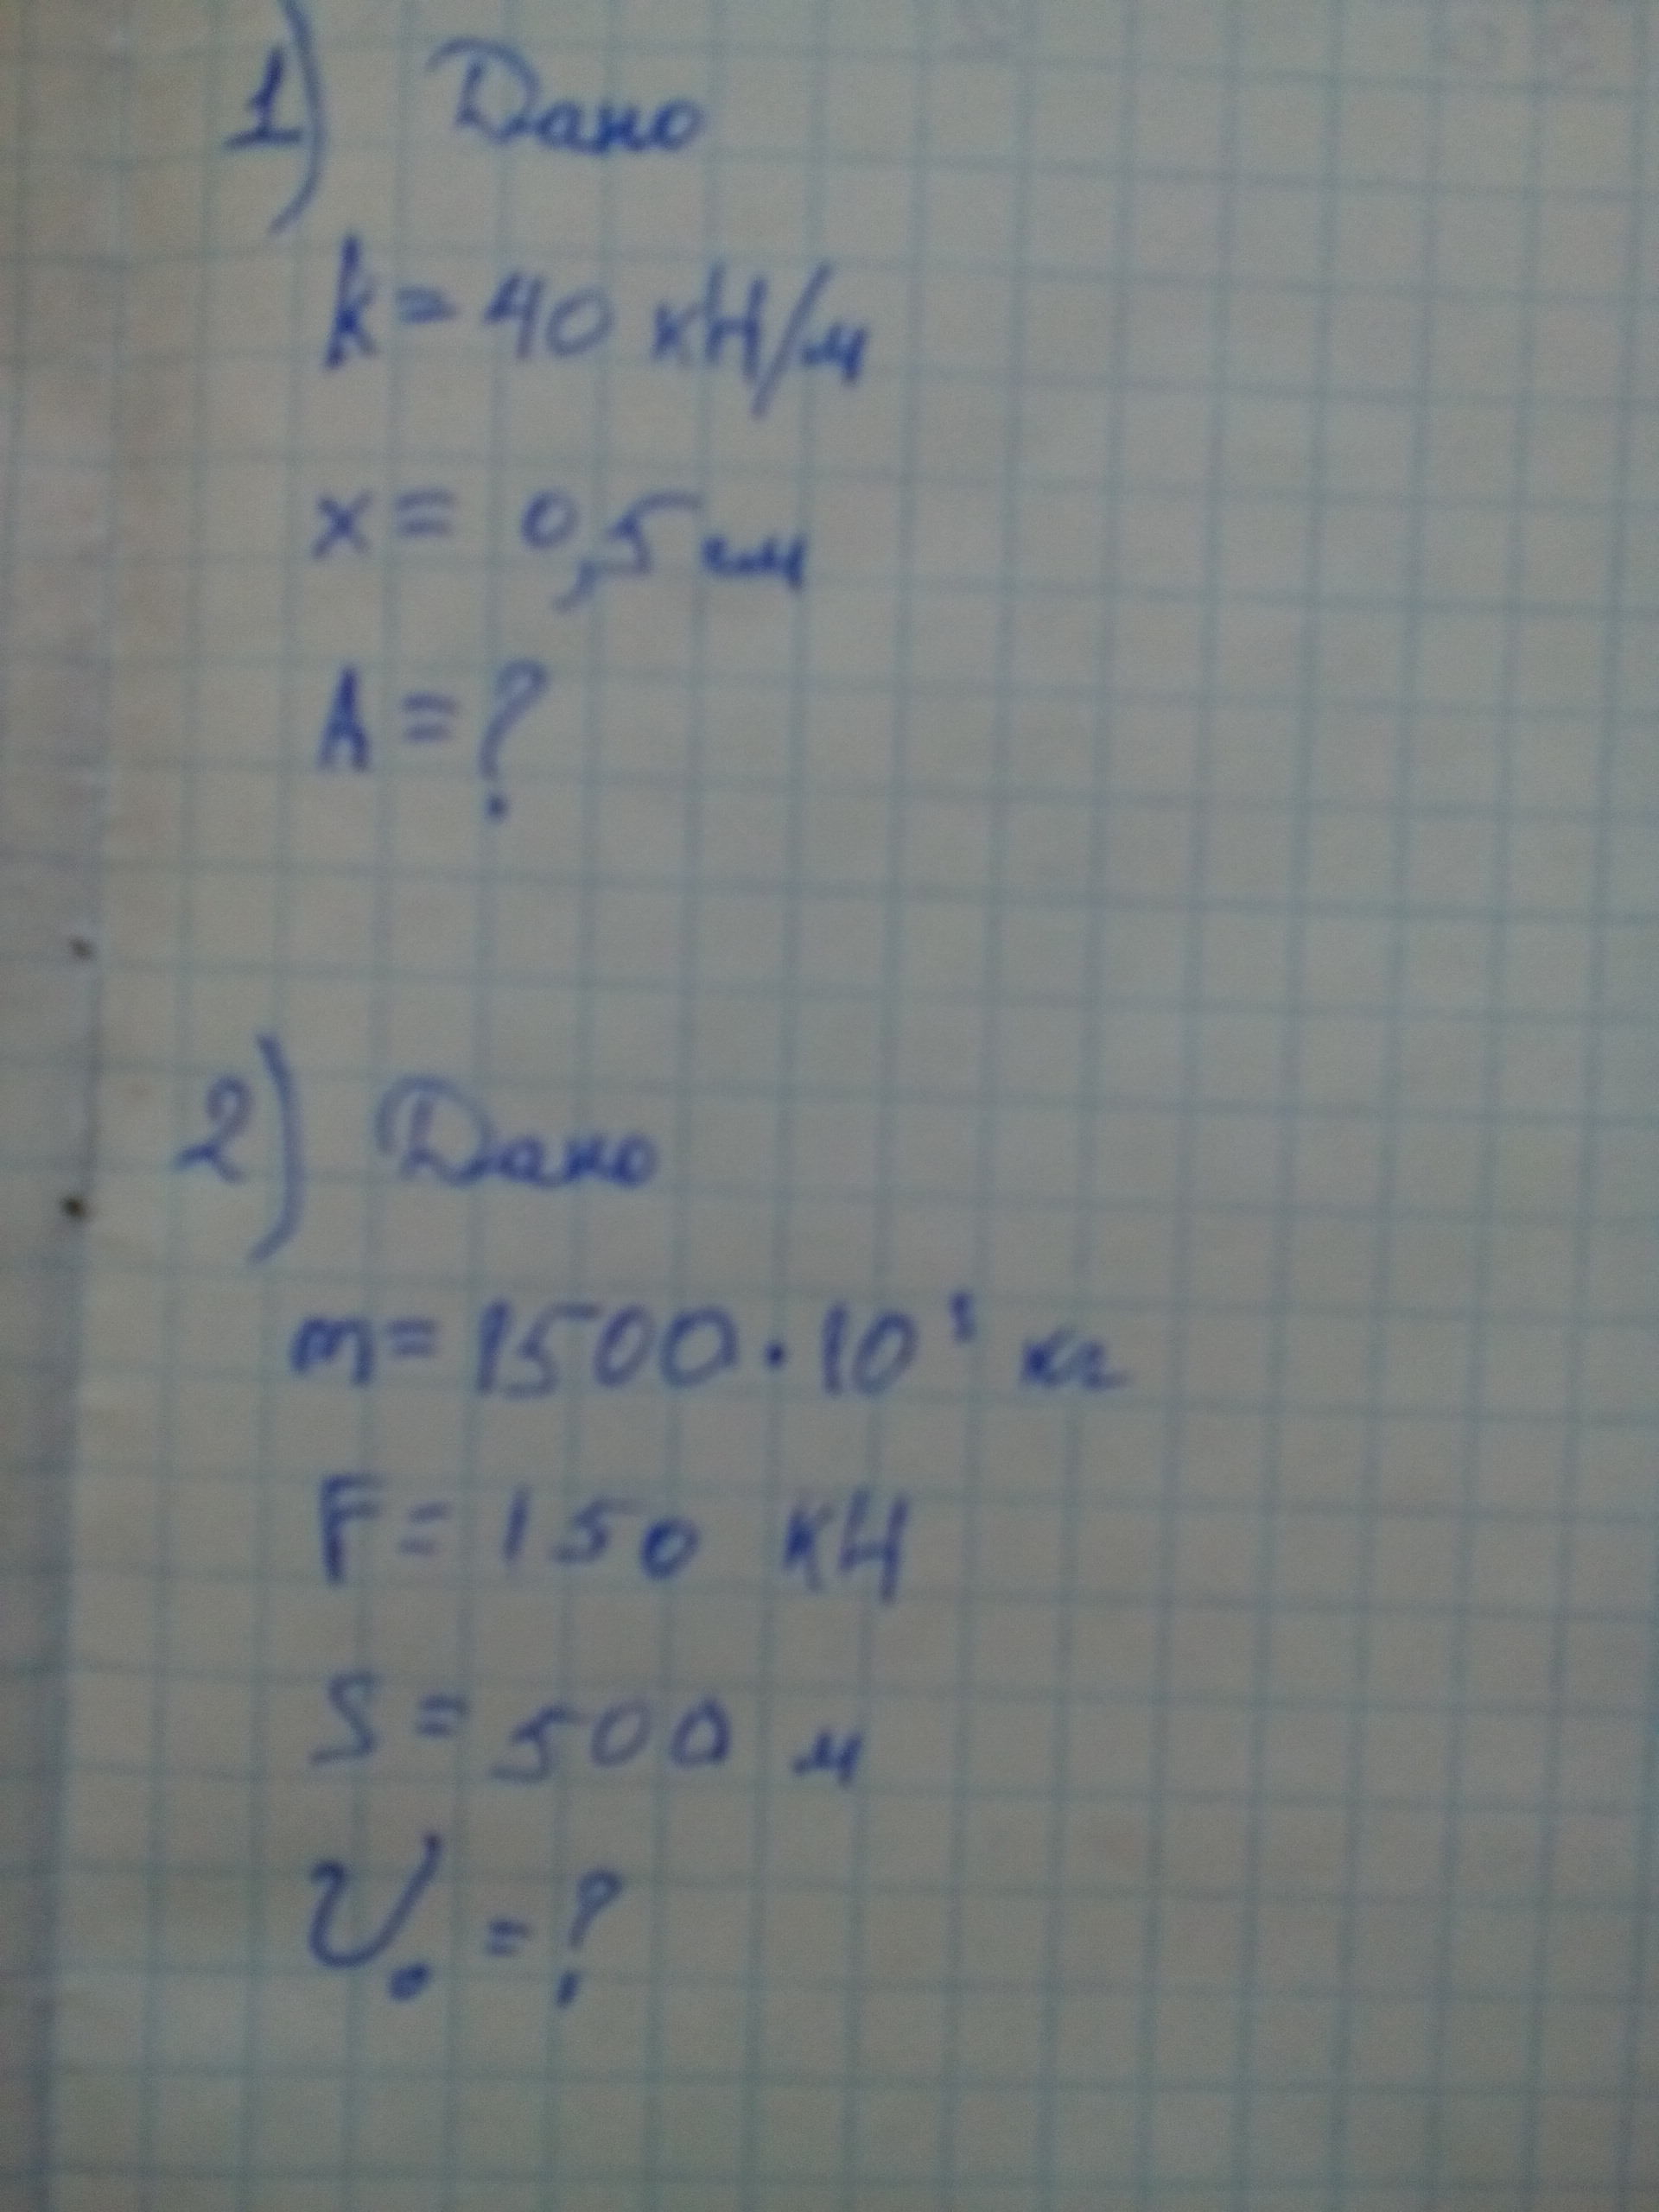 1) Дано
k = 40 кН/м
x = 0,5 см
A = ?
2) Дано
m = 1500 · 10³ кг
F = 150 кН
S = 500 м
V₀ = ?